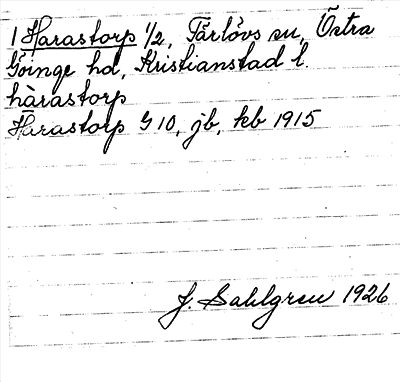 1 Harastorp 1/2, Färlövs sn, Östra
Göinge hd, Kristianstad l.
hàrastorp
Harastorp G 10, jb, kb 1915
J. Sahlgren 1926